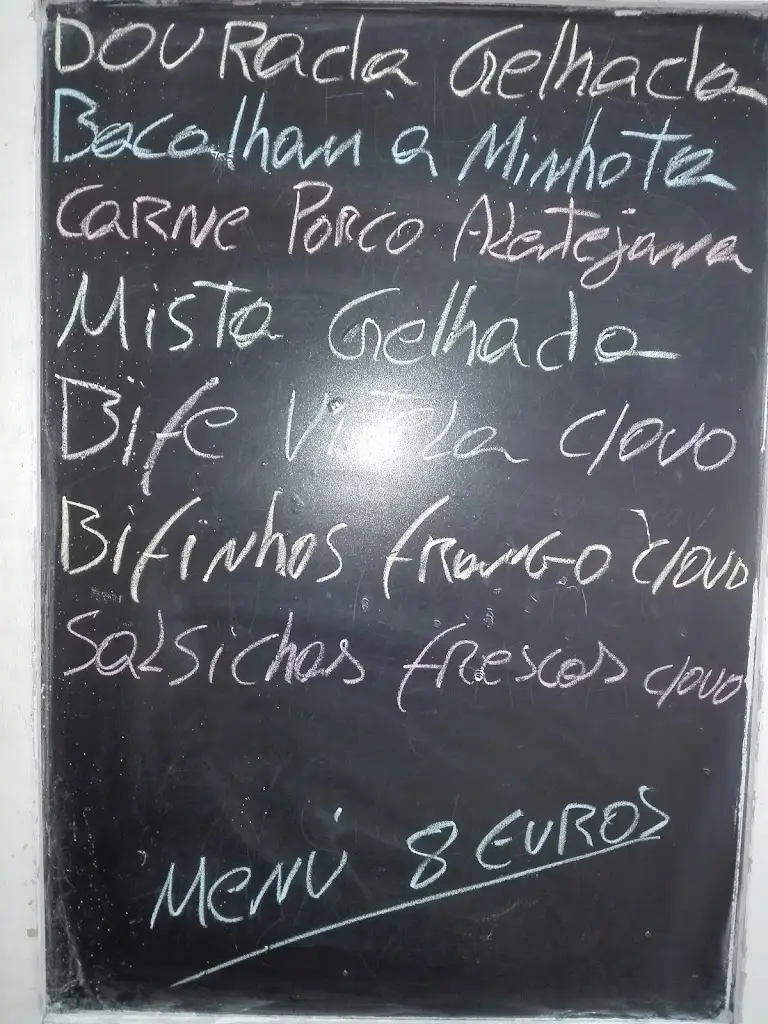 DOURADA Gelhada
Bacalhau à Minhota
CARNE PORCO Alentejana
Mista Gelhada
Bife Vitela c/ovo
Bifinhos frango c/ovo
Salsichas frescas c/ovo
Menú 8 EUROS